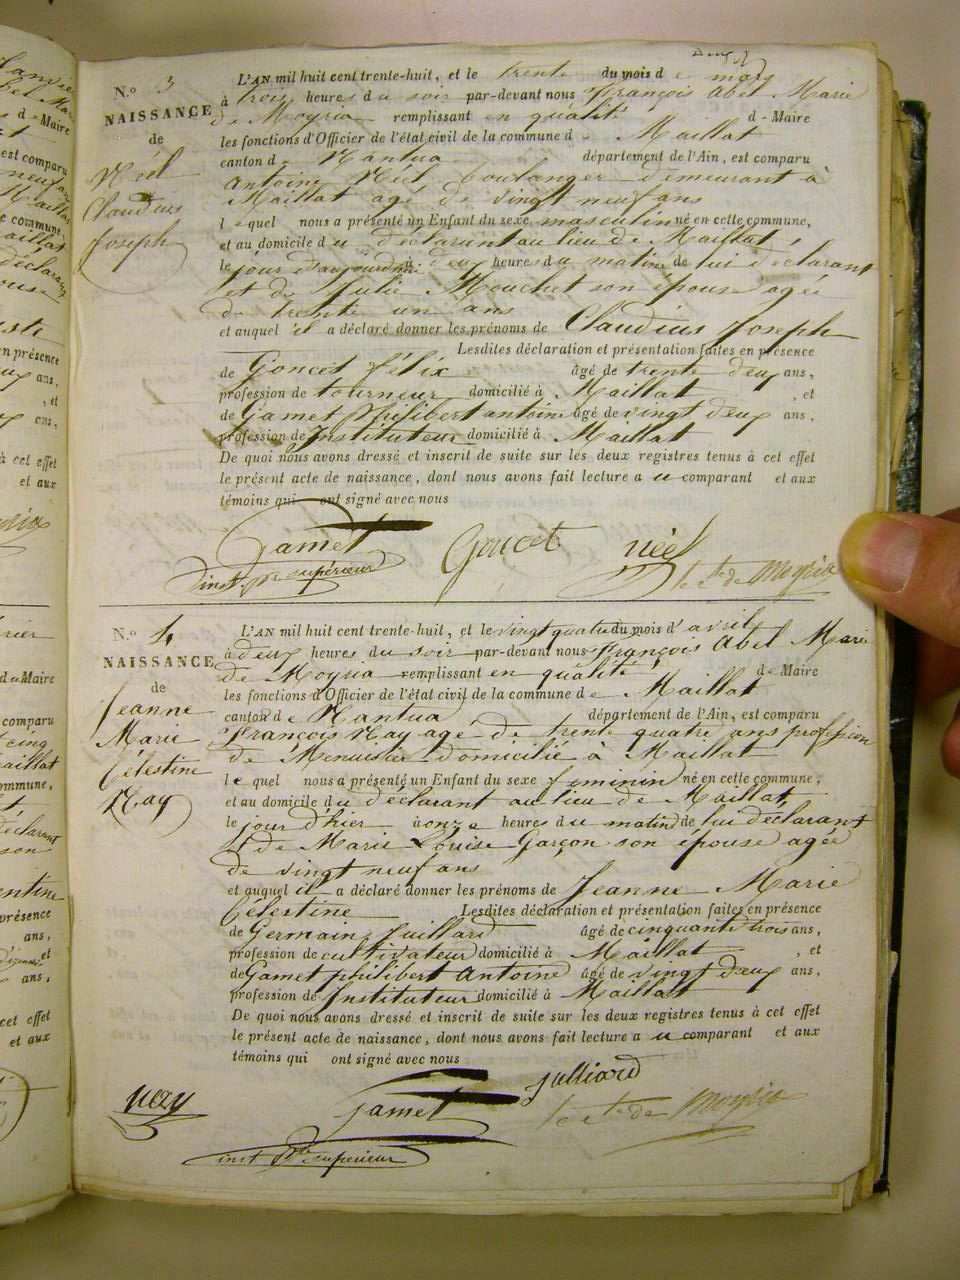 N.° 3
NAISSANCE
de
Néel
Claudius
Joseph
L'AN mil huit cent trente-huit, et le trente du mois de mars
à trois heures du soir par-devant nous François Abel Marie
de Moyria remplissant en qualité d - Maire
les fonctions d'Officier de l'état civil de la commune d - Maillat
canton de Nantua département de l'Ain, est comparu
Antoine Néel boulanger demeurant à
Maillat agé de vingt neuf ans
lequel nous a présenté un Enfant du sexe masculin né en cette commune,
et au domicile du déclarant au lieu de Maillat,
le jour d'aujourdhui à deux heures du matin de lui déclarant
et de Julie Mouchet son épouse agée
de trente un ans
et auquel il a déclaré donner les prénoms de Claudius Joseph
Lesdites déclaration et présentation faites en présence
de Goncet félix âgé de trente deux ans,
profession de tourneur domicilié à Maillat, et
de Gamet Philibert antoine âgé de vingt deux ans,
profession de Instituteur domicilié à Maillat
De quoi nous avons dressé et inscrit de suite sur les deux registres tenus à cet effet
le présent acte de naissance, dont nous avons fait lecture au comparant et aux
témoins qui ont signé avec nous
Gamet Goncet néel
inst. pre supérieur le cte de Moyria
N.° 4
NAISSANCE
de
Jeanne
Marie
Célestine
Nay
L'AN mil huit cent trente-huit, et le vingt quatre du mois d'avril
à deux heures du soir par-devant nous François Abel Marie
de Moyria remplissant en qualité de Maire
les fonctions d'Officier de l'état civil de la commune de Maillat
canton de Nantua département de l'Ain, est comparu
François Nay agé de trente quatre ans profession
de Menuisier domicilié à Maillat
lequel nous a présenté un Enfant du sexe féminin né en cette commune,
et au domicile du déclarant au lieu de Maillat,
le jour d'hier à onze heures du matin de lui déclarant
et de Marie Louise Garçon son épouse agée
de vingt neuf ans
et auquel il a déclaré donner les prénoms de Jeanne Marie
Célestine Lesdites déclaration et présentation faites en présence
de Germain Juillard âgé de cinquante trois ans,
profession de cultivateur domicilié à Maillat, et
de Gamet philibert Antoine âgé de vingt deux ans,
profession de Instituteur domicilié à Maillat
De quoi nous avons dressé et inscrit de suite sur les deux registres tenus à cet effet
le présent acte de naissance, dont nous avons fait lecture au comparant et aux
témoins qui ont signé avec nous
nay Gamet julliard
le cte de Moyria
inst pre supérieur